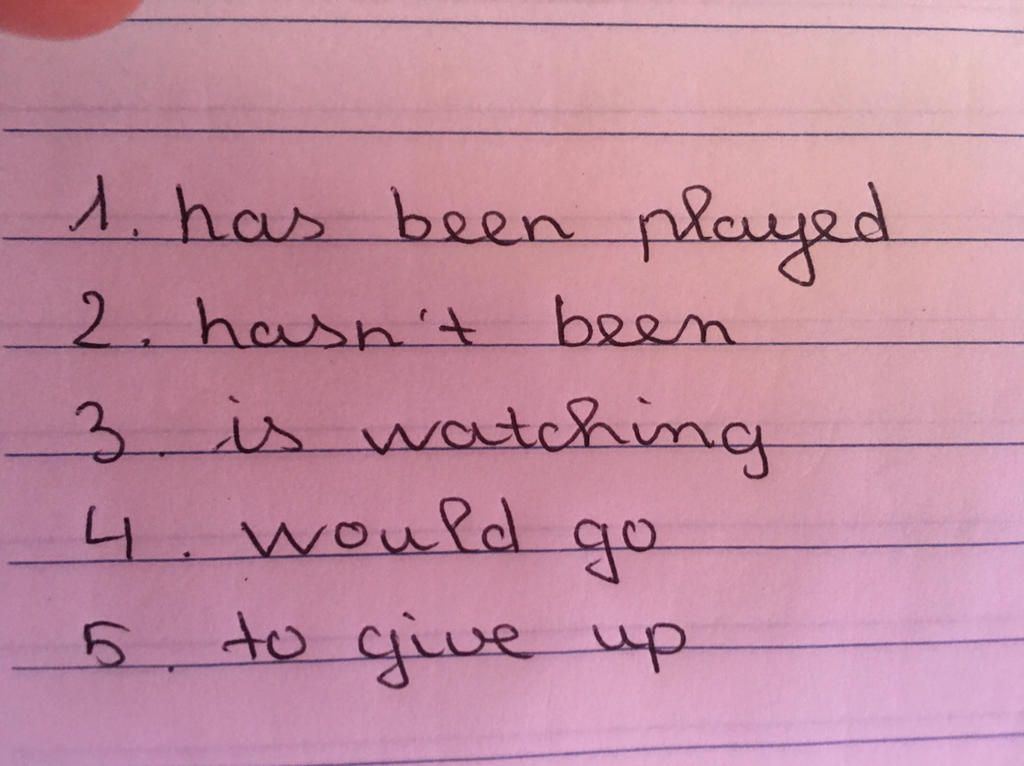 1. has been played
2. hasn't been
3. is watching
4. would go
5. to give up